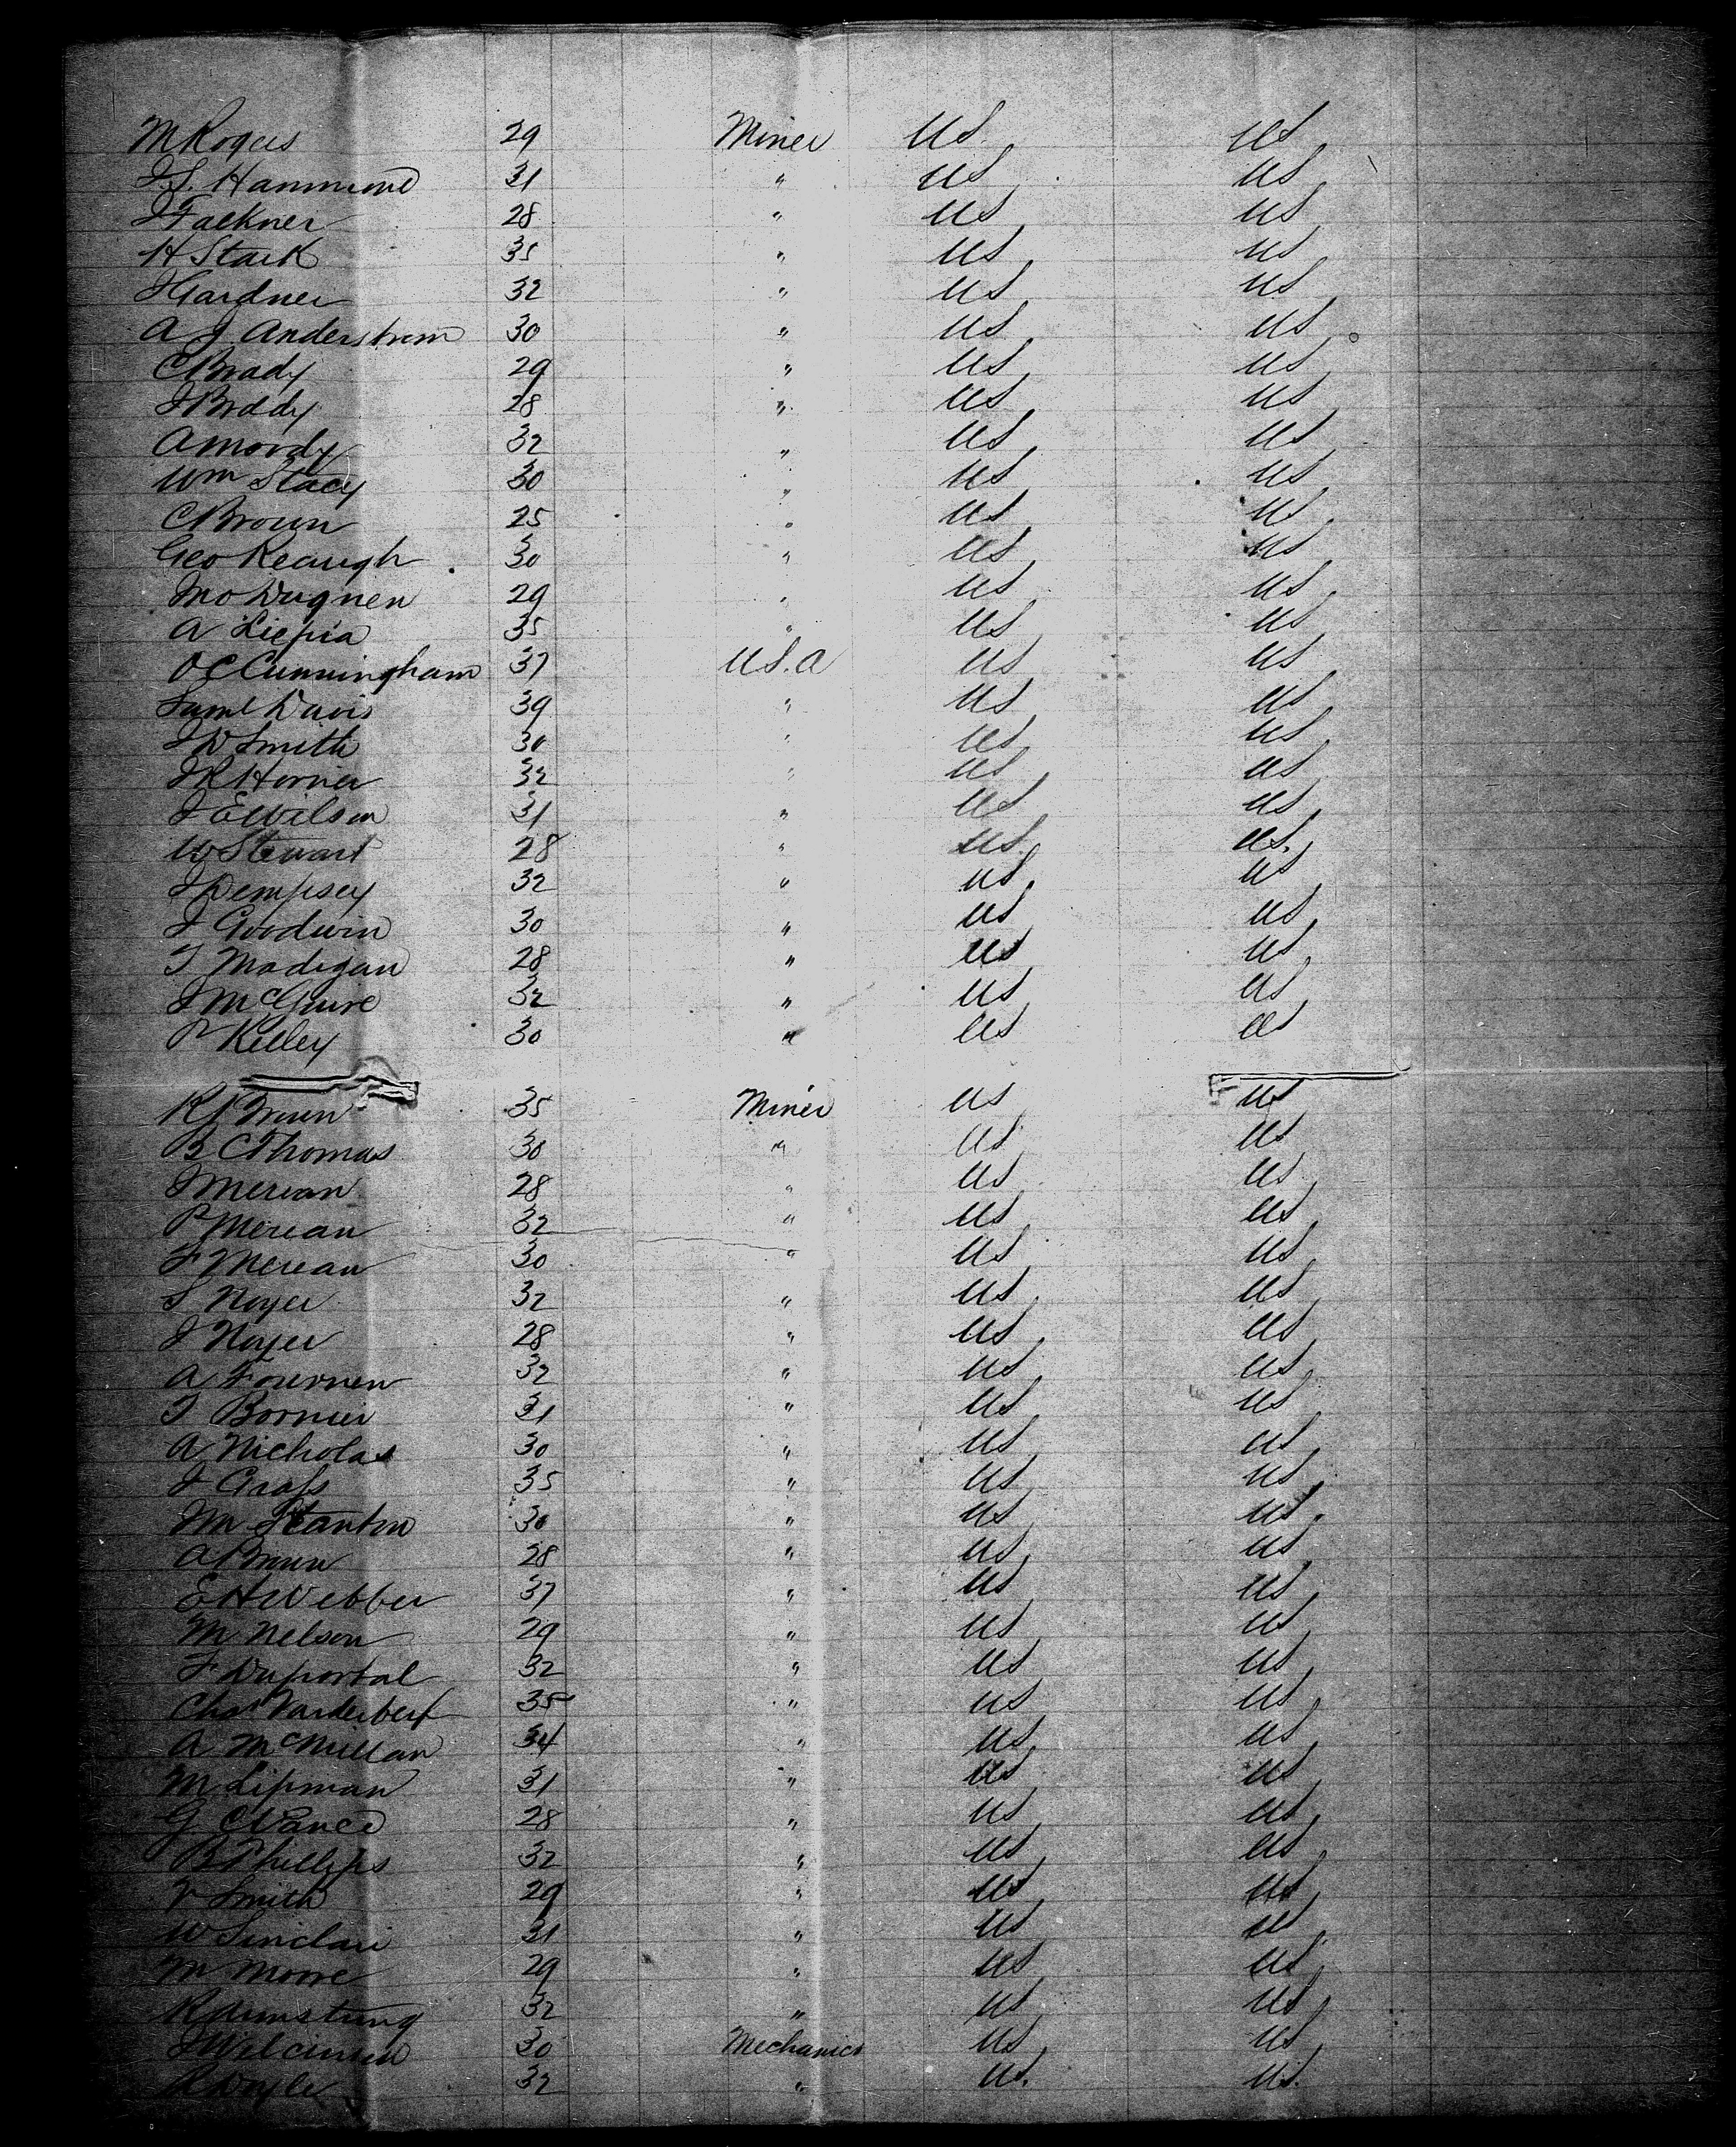 M Rogers 29 Miner US. US
J.S. Hammond 31 " US US
J Falkner 28 " US US
H Stark 35 " US US
J Gardner 32 " US US
A J Anderstrom 30 " US US
C Brady 29 " US US
J Brody 28 " US US
A Moody 32 " US US
Wm Stacy 30 " US US
C Brown 25 " US US
Geo Keaugh 30 " US US
Jno Dugnen 29 " US US
A Liepia 35 " US US
O C Cunningham 37 U.S.A US US
Saml Davis 39 " US US
J D Smith 30 " US US
J R Horner 32 " US US
J E Wilson 31 " US US
W Stewart 28 " US. US.
J Dempsey 32 " US. US
J Goodwin 30 " US US
T Madigan 28 " US US
J McGuire 32 " US US
P Kelley 30 " US US
R J Brown 35 Miner US US
B C Thomas 30 " US US
J Merean 28 " US US
P Merean 32 " US US
F Merean 30 " US US
S Noyer 32 " US US
J Noyer 28 " US US
A Fournen 32 " US US
T Bornier 31 " US US
A Nicholas 30 " US US
J Grass 35 " US US
M Stanton 30 " US US
A Brown 28 " US US
E H Webber 37 " US US
M Nelson 29 " US US
F Duportal 32 " US US
Chas Vanderbert 35 " US US
A McMillan 34 " US US
M Lipman 31 " US US
G C Vance 28 " US US
B Phillips 32 " US US
V Smith 29 " US US
W Sinclair 31 " US US
M Moore 29 " US US
R Armstrong 32 " US US
J Wilcinsen 30 Mechanics US US
R Doyle 32 " US. US.